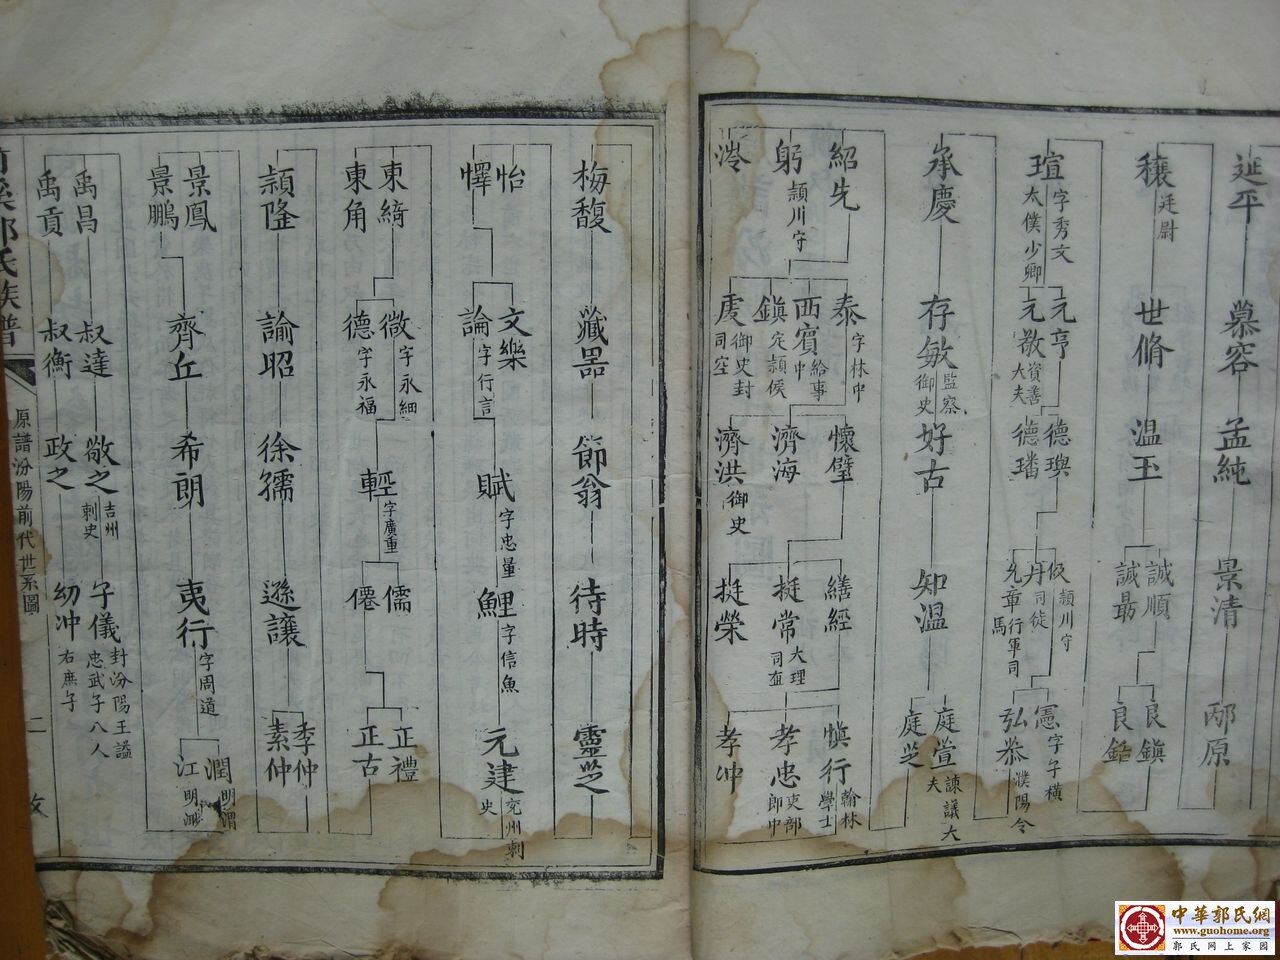 延平
慕容
孟純
景清
邴原
穰 廷尉
世脩
温玉
誠順
誠最
良鎭
瑄 字秀文
太僕少卿
元亨
元敬 資善
大夫
德璵
德璠
丹 司徒
允章 行軍司
馬
憲 字子橫
弘恭 濮陽令
承慶
存敏 監察
御史
好古
知温
庭萱 諫議大
夫
庭芝
紹先
躬 潁川守
泠
泰 字林中
西賓 給事
中
鎭 定潁侯
虔 御史封
司空
懷璧
濟海
濟洪 御史
繕經
挺常 大理
挺榮
慎行 翰林
學士
孝忠 吏部
郎中
孝冲
梅馥
藏器
節翁
待時
靈芝
怡
懌
文樂
論 字行言
賦 字忠量
鯉 字信魚
元建 兖州刺
史
東綺
東角
微 字永細
德 字永福
輕 字廣重
儒
僊
正禮
正古
穎隆
諭昭
徐孺
遜讓
季仲
素仲
景鳳
景鵬
齊丘
希朗
夷行 字周道
潤
江
禹昌
禹貢
叔達
叔衡
敬之 吉州
刺史
政之
子儀 封汾陽王謚
忠武子八人
幼冲 右庶子
郭氏族譜
原譜汾陽前代世系圖
二
中華郭氏網
www.guohome.org
郭氏网上家园